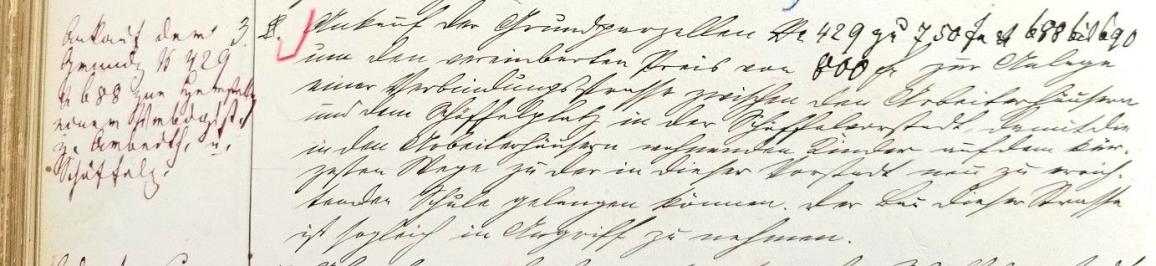 Ankauf der 3
Grundz. N 429
N 688 zur Herstell.
einer Verbdgsst.
z. Arbeith. u.
Schäffelpl.
8. Ankauf der Grundparzellen Nr 429 zu 750 fn 688 bis 690
um den vereinbarten Preis von 800 zur Anlage
einer Verbindungsstrasse zwischen den Arbeiterhäusern
und dem Schäffelplatz in der Schäffelvorstadt, damit die
in den Arbeiterhäusern wohnenden Kinder auf dem kür-
zesten Wege zu der in dieser Vorstadt neu zu errich-
tenden Schule gelangen können. Der Bau dieser Strasse
ist sogleich in Angriff zu nehmen.